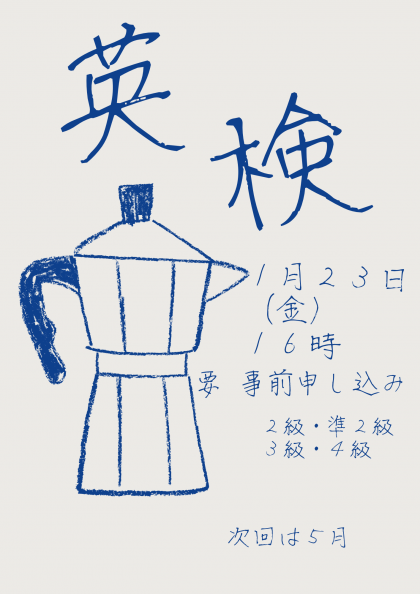 英検
1月23日
(金)
16時
要 事前申し込み
2級・準2級
3級・4級
次回は5月